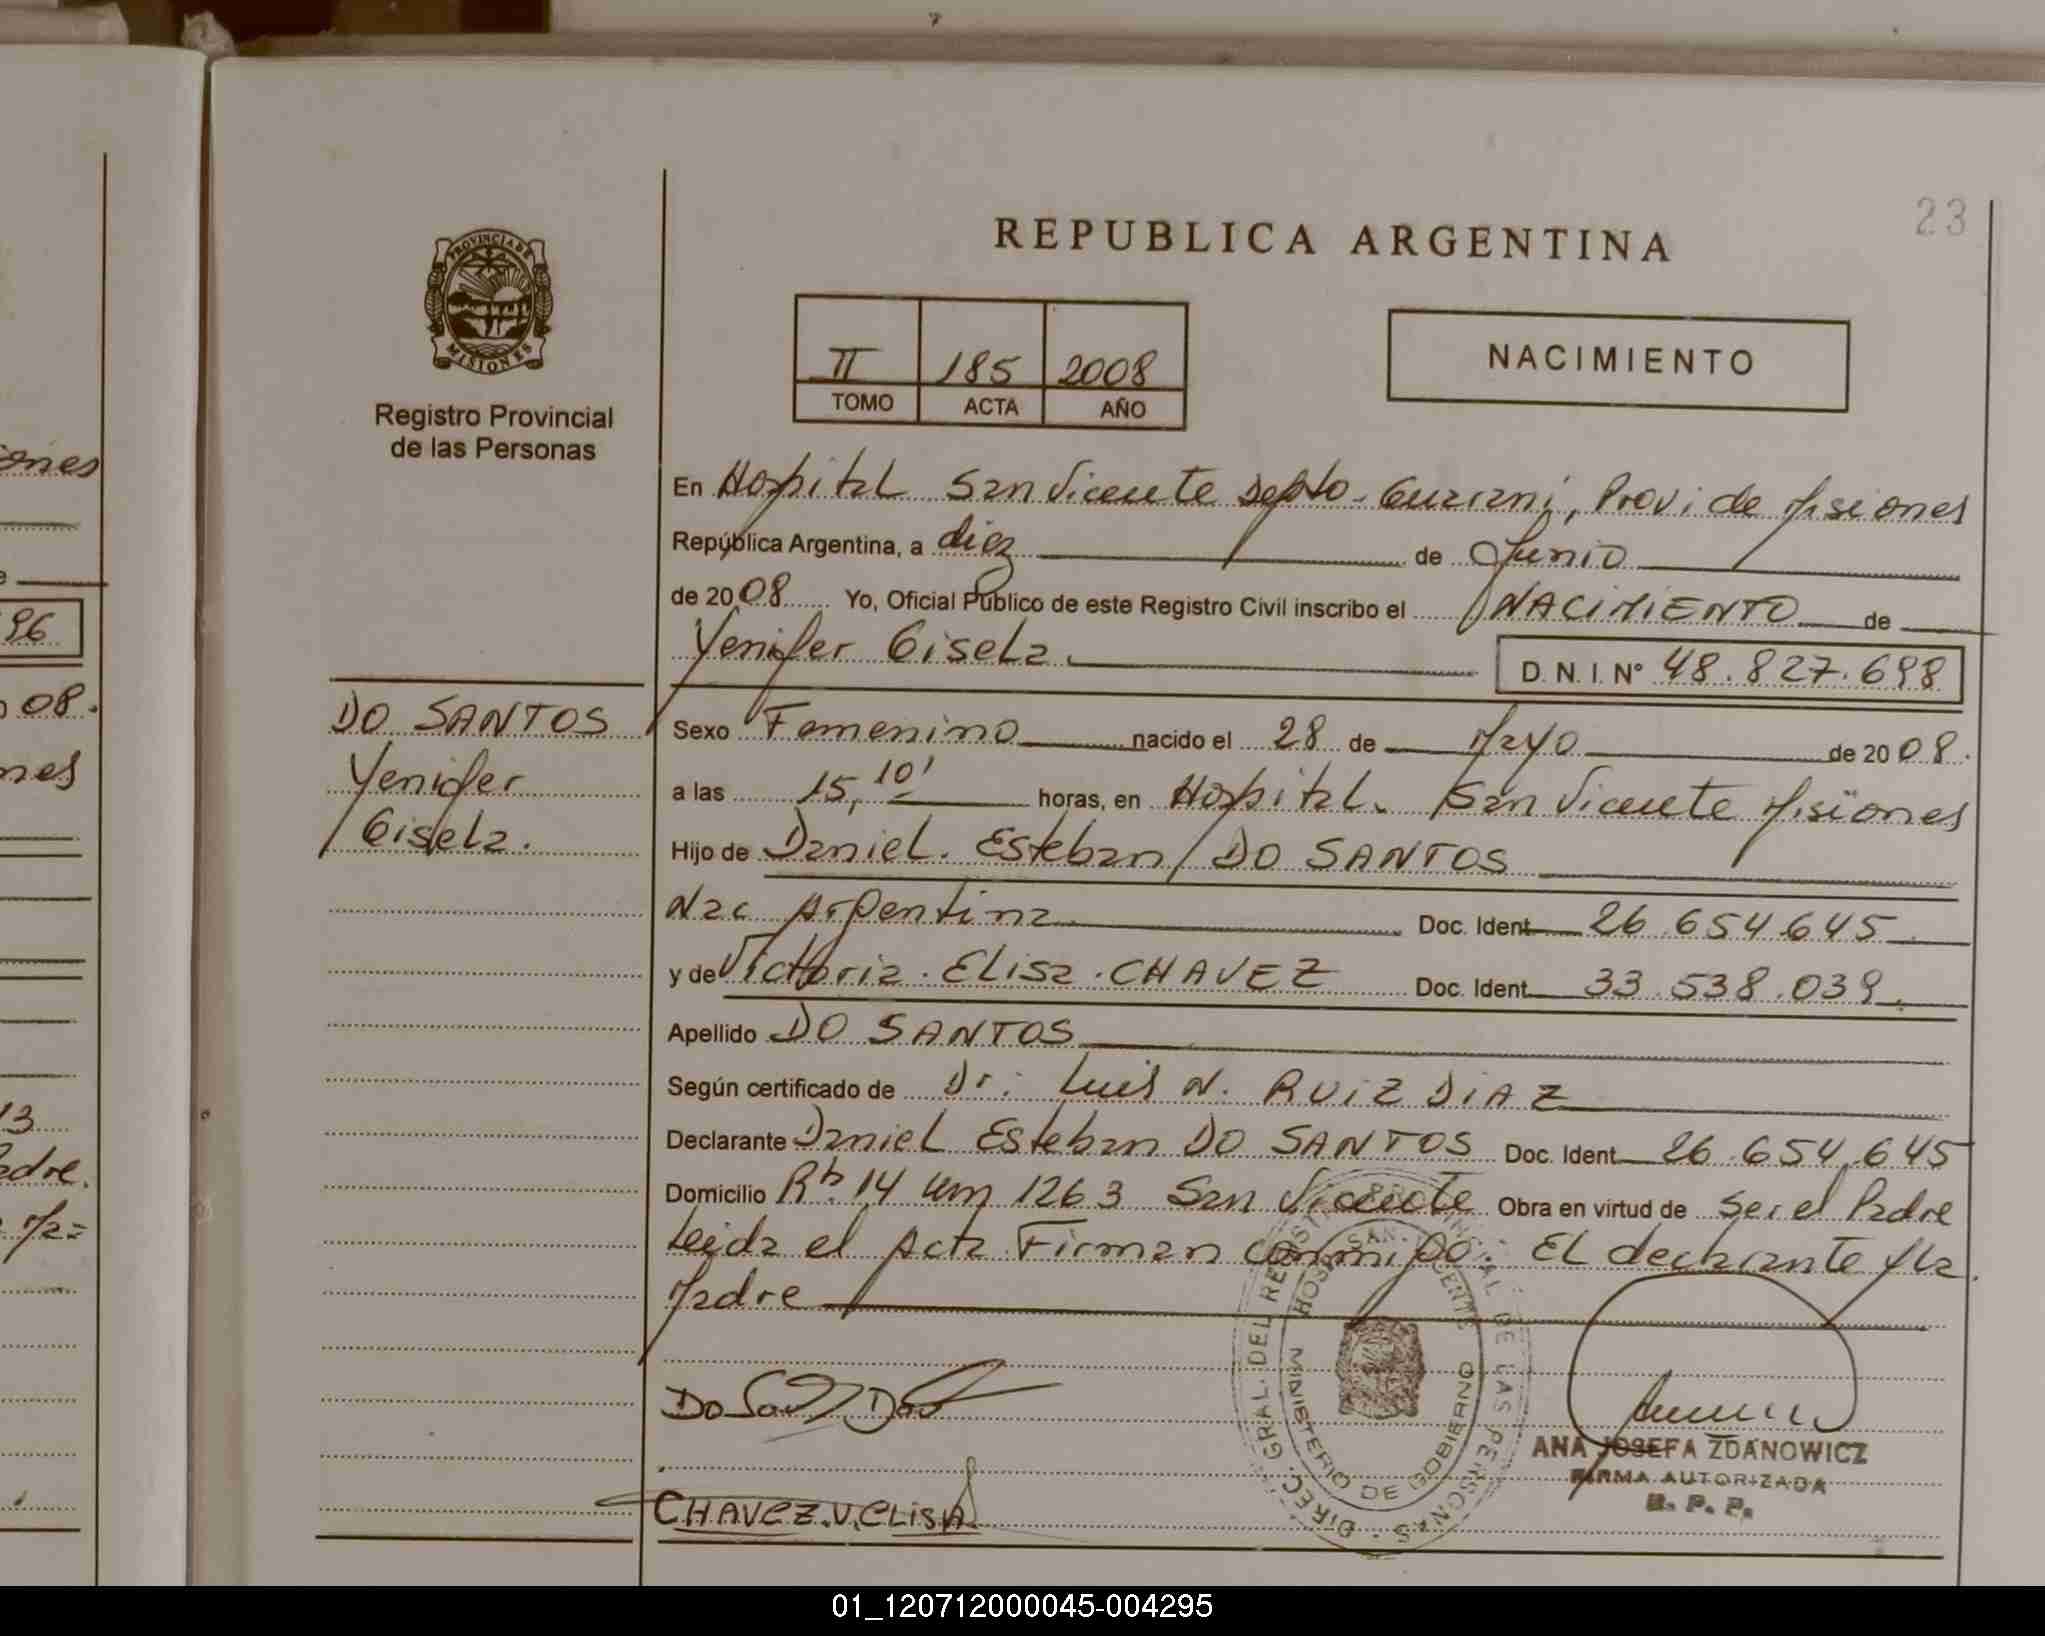 23
REPUBLICA ARGENTINA
PROVINCIA DE
MISIONES
Registro Provincial
de las Personas
II 185 2008
TOMO ACTA AÑO
NACIMIENTO
En Hospital San Vicente Depto. Guarani, Provi de Misiones
República Argentina, a diez de Junio
de 2008 Yo, Oficial Público de este Registro Civil inscribo el NACIMIENTO de
Yenifer Gisela
D. N. I. Nº 48.827.698
DO SANTOS
Yenifer
Gisela.
Sexo Femenino nacido el 28 de Mayo de 2008.
a las 15,10' horas, en Hospital. San Vicente Misiones
Hijo de Daniel. Esteban DO SANTOS
Nac Argentina Doc. Ident 26.654.645
y de Victoria. Elisa. CHAVEZ Doc. Ident 33.538.039.
Apellido DO SANTOS
Según certificado de Dr: Luis N. RUIZ DIAZ
Declarante Daniel Esteban DO SANTOS Doc. Ident 26.654.645
Domicilio Rta. 14 Km 1263 San Vicente Obra en virtud de Ser el Padre
Leida el Acta Firman conmigo: El declarante y la
Madre
DIREC. GRAL. DEL REGISTRO PROVINCIAL DE LAS PERSONAS
HOSP. SAN VICENTE
MINISTERIO DE GOBIERNO
ANA JOSEFA ZDANOWICZ
FIRMA AUTORIZADA
R. P. P.
CHAVEZ.V.ELISA
ones
96
08.
nes
13
adre.
Ma=
01_120712000045-004295